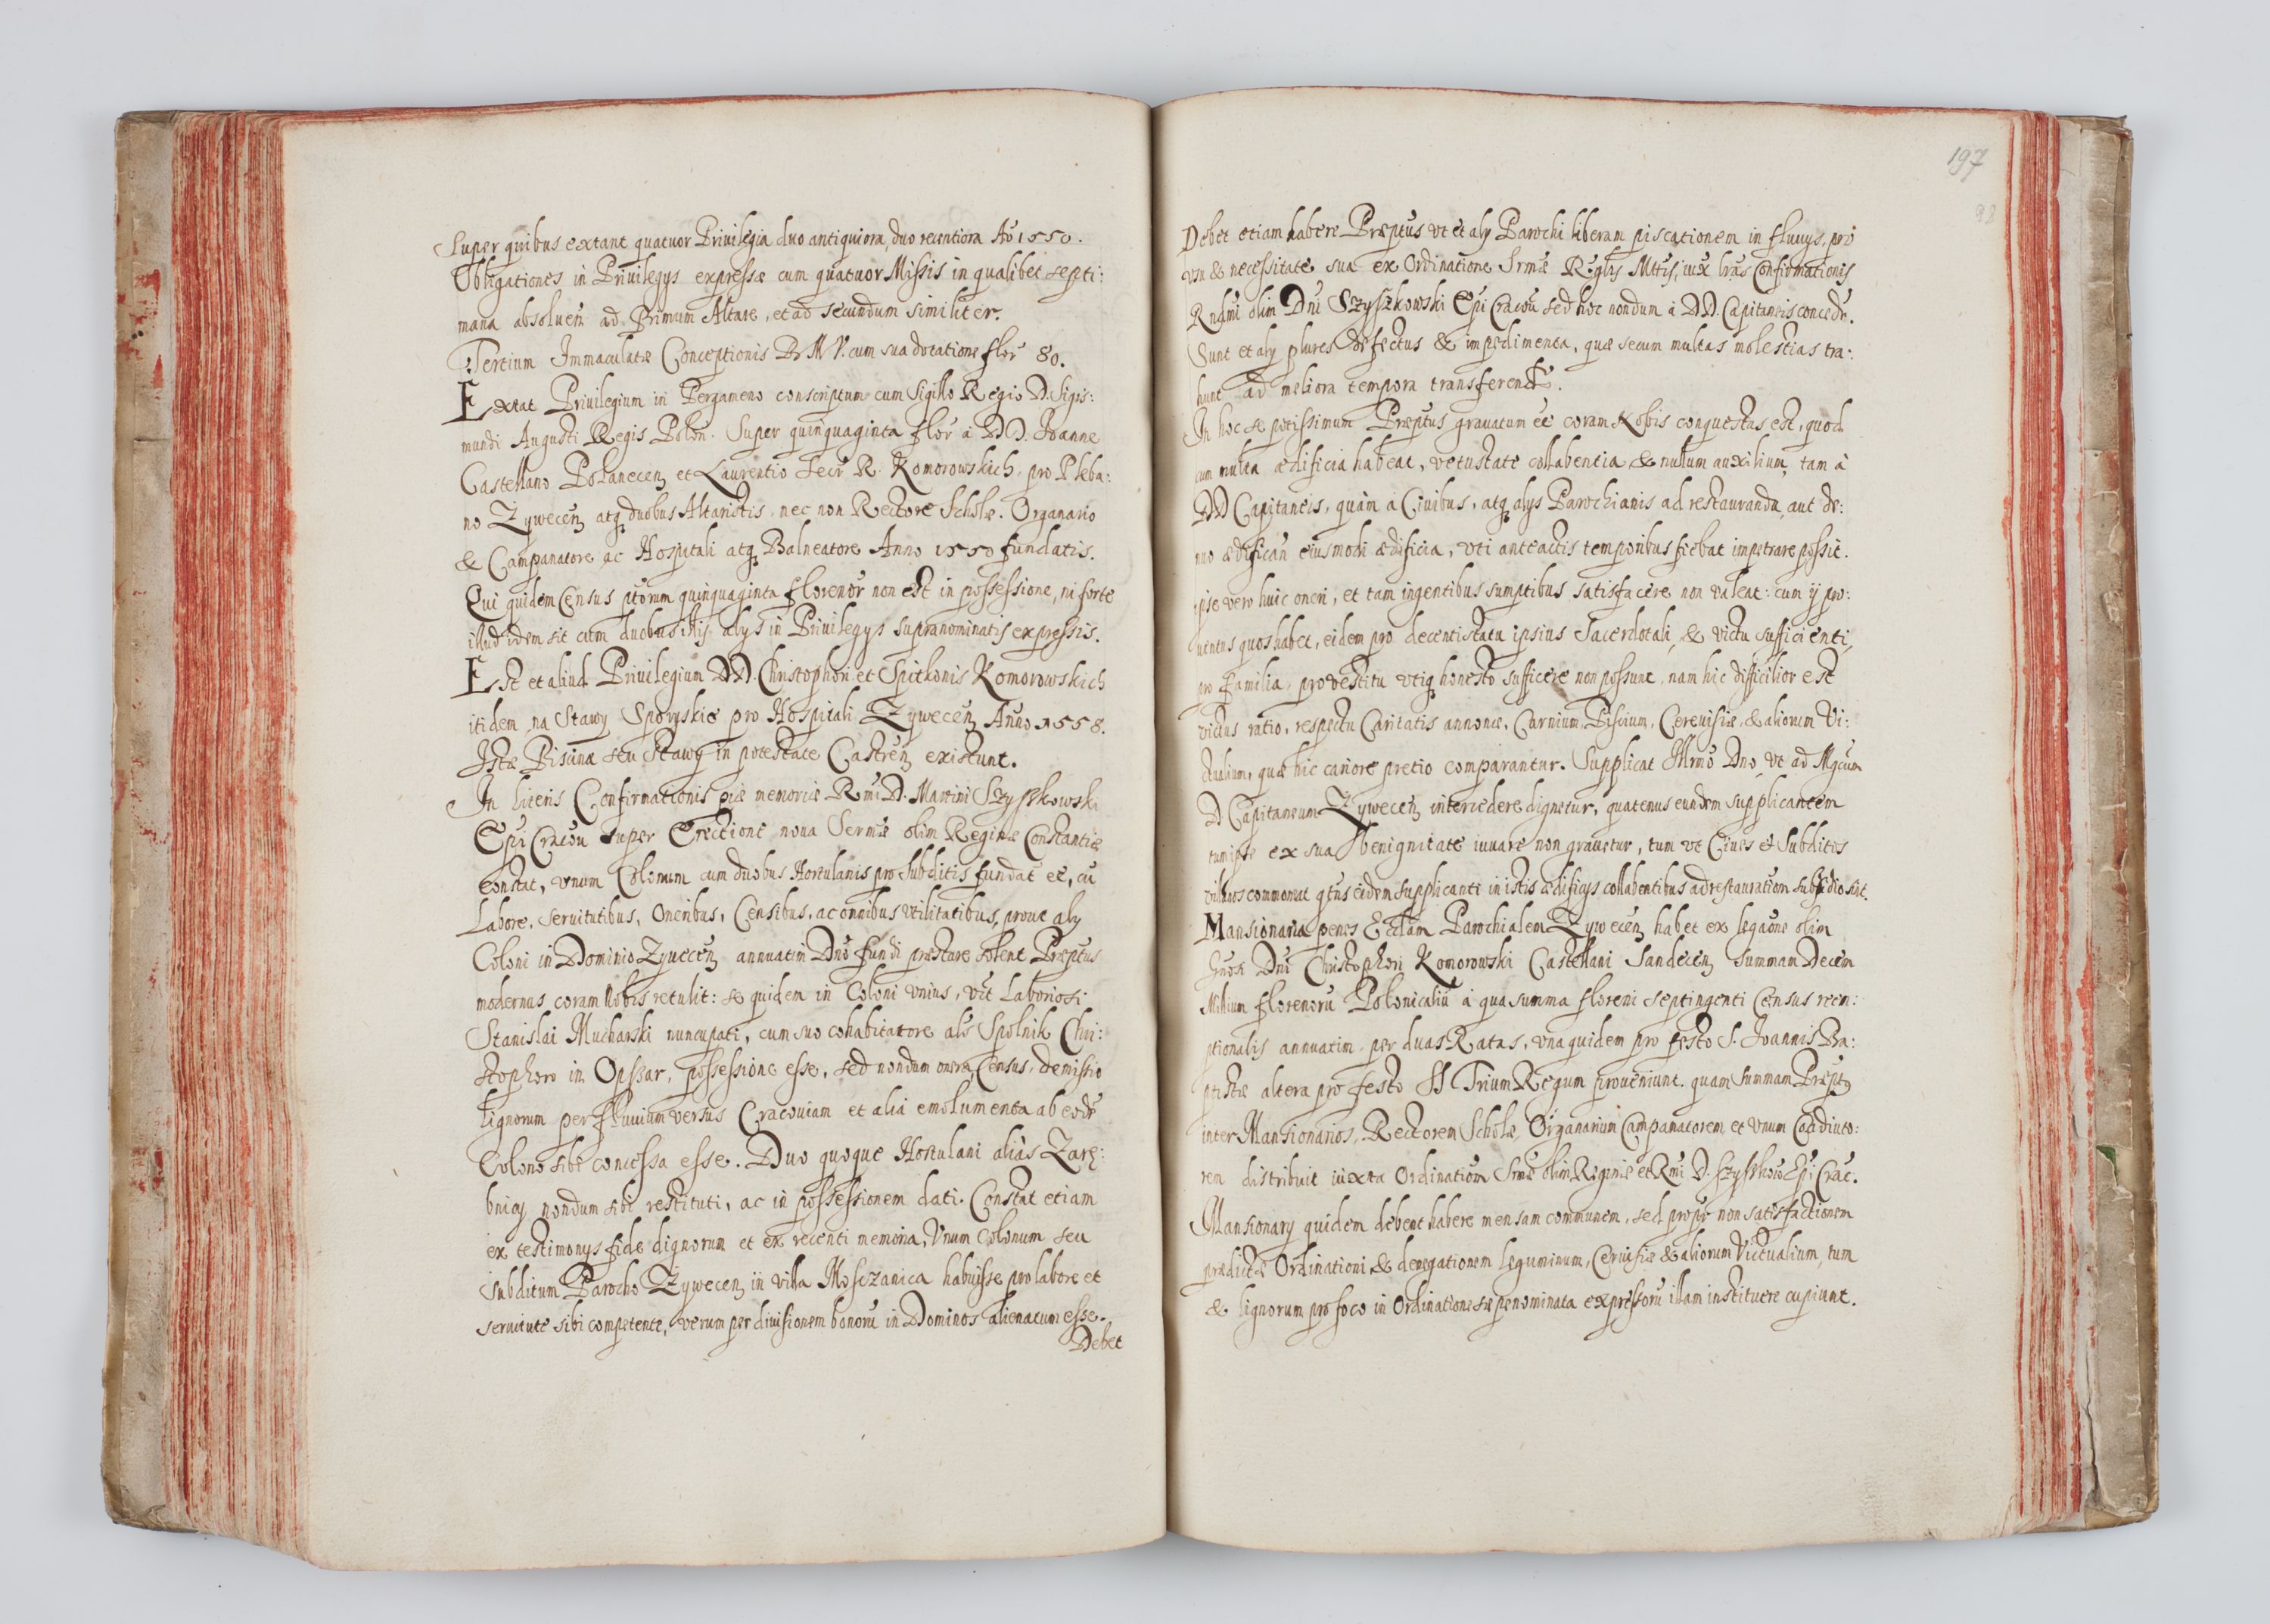 Super quibus extant quatuor Priuilegia duo antiquiora, duo recentiora Aō 1550.
Obligationes in Priuilegys expressæ cum quatuor Missis in qualibet septi:
mana absoluen ad Primum Altare, et ad secundum similiter.
Tertium Immaculatæ Conceptionis B M V. cum sua dotatione flor 80.
Extat Priuilegium in Pergameno conscriptum cum Sigillo Regio D. Sigis:
mundi Augusti Regis Polon. Super quinquaginta flor à D D. Joanne
Castellano Polanecen et Laurentio Secr R. Komorowskich, pro Pleba:
no Zywecen atq duobus Altaristis, nec non Rectore Scholæ. Organario
& Campanatore ac Hospitali atq Balneatore Anno 1550 fundatis.
Qui quidem Census istorum quinquaginta florenor non est in possessione, ni forte
illud idem sit cum duobus alys in Priuilegys supranominatis expressis.
Est et aliud Priuilegium DD. Christophori et Spitkonis Komorowskich
itidem na Stawy Sporyskie pro Hospitali Zywecen Anno 1558.
Istæ Piscinæ seu Stawy in potestate Castren existunt.
In literis Confirmationis piæ memoriæ Rmi D. Martini Szyszkowski
Epi Cracou super Erectione noua Sermæ olim Reginæ Constantiæ
constat, vnum Colonum cum duobus Hortulanis pro subditis fundat eē, cū
Labore, seruitutibus, Oneribus, Censibus, ac omnibus vtilitatibus, prout aly
Coloni in Dominio Zywecen annuatim Dno fundi præstare solent Præptus
modernus coram Nobis retulit: se quidem in Coloni vnius, vīt Laboriosi
Stanislai Mucharski nuncupati, cum suo cohabitatore alš Spolnik Chri:
stophoro in Opszar, possessione esse, sed nondum onera, Census, demissio
lignorum per fluuium versus Cracouiam et alia emolumenta ab eode
Colono sibi concessa esse. Duo quoque Hortulani aliàs Zarę:
bnicy nondum sibi restituti, ac in possessionem dati. Constat etiam
ex testimonys fide dignorum et ex recenti memoria, Vnum Colonum seu
subditum Parocho Zywecen in villa Mosczanica habuisse pro labore et
seruitute sibi competente, verum per diuisionem bonorū in Dominos alienatum esse.
Debet
197
Debet etiam habere Præptus vt et aly Parochi liberam piscationem in fluuys, pro
vsu & necessitate sua ex Ordinatione Srmæ Reglis Mttis, iux lras Confirmationis
Rndmi olim Dni Szyszkowski Epi Cracou sed hoc nondum à DD. Capitaneis concedr.
Sunt et aly plures defectus & impedimenta, quæ secum multas molestias tra:
hunt ad meliora tempora transferend.
In hoc se potissimum Præptus grauatum eē coram Nobis conquestus est, quod
cum multa ædificia habeat, vetustate collabentia & nullum auxilium, tam à
DD Capitaneis, quàm à Ciuibus, atq alys Parochianis ad restauranda, aut de:
nuo ædifican eiusmodi ædificia, vti anteactis temporibus fiebat impetrare possit.
ipse vero huic oneri, et tam ingentibus sumptibus satisfacere non valeat: cum ij pro:
uentus quos habet, eidem pro decenti statu ipsius Sacerdotali, & victu sufficienti,
pro familia, pro vestitu vtiq honesto sufficere non possunt, nam hic difficilior est
victus ratio, respectu Caritatis annonæ, Carnium, Piscium, Cereuisiæ, & aliorum Vi:
ctualium, quæ hic cariore pretio comparantur. Supplicat Illrmo Dno, vt ad Mgcum
D Capitaneum Zywecen intercedere dignetur, quatenus eundem supplicantem
tum ipse ex sua benignitate iuuare non grauetur, tum vt Ciues et Subditos
villanos commoneat qtus eidem supplicanti in istis ædificys collabentibus ad restauratiom subsidio sint.
Mansionaria penes Ecclām Parochialem Zywecen habet ex legaōne olim
Dni Christophori Komorowski Castellani Sandecen Summam Decem
Millium florenorū Polonicaliū à qua summa floreni septingenti Census reem:
ptionalis annuatim per duas Ratas, vna quidem pro festo S. Joannis Ba:
ptistæ altera pro festo SS Trium Regum proueniunt. quam summam Præpt9
inter Mansionarios, Rectorem Scholæ, Organarium Campanatorem et vnum Coadiuto:
rem distribuit iuxta Ordinatiom Srmæ olim Reginæ et Rmi D. Szyszkow Epi Crac.
Mansionary quidem debent habere mensam communem, sed propr non satisfactionem
prædictæ Ordinationi & denegationem leguminum, Ceruisiæ & aliorum Victualium, tum
& lignorum pro foco in Ordinatione sæpenominata expressorū illam instituere cupiunt.